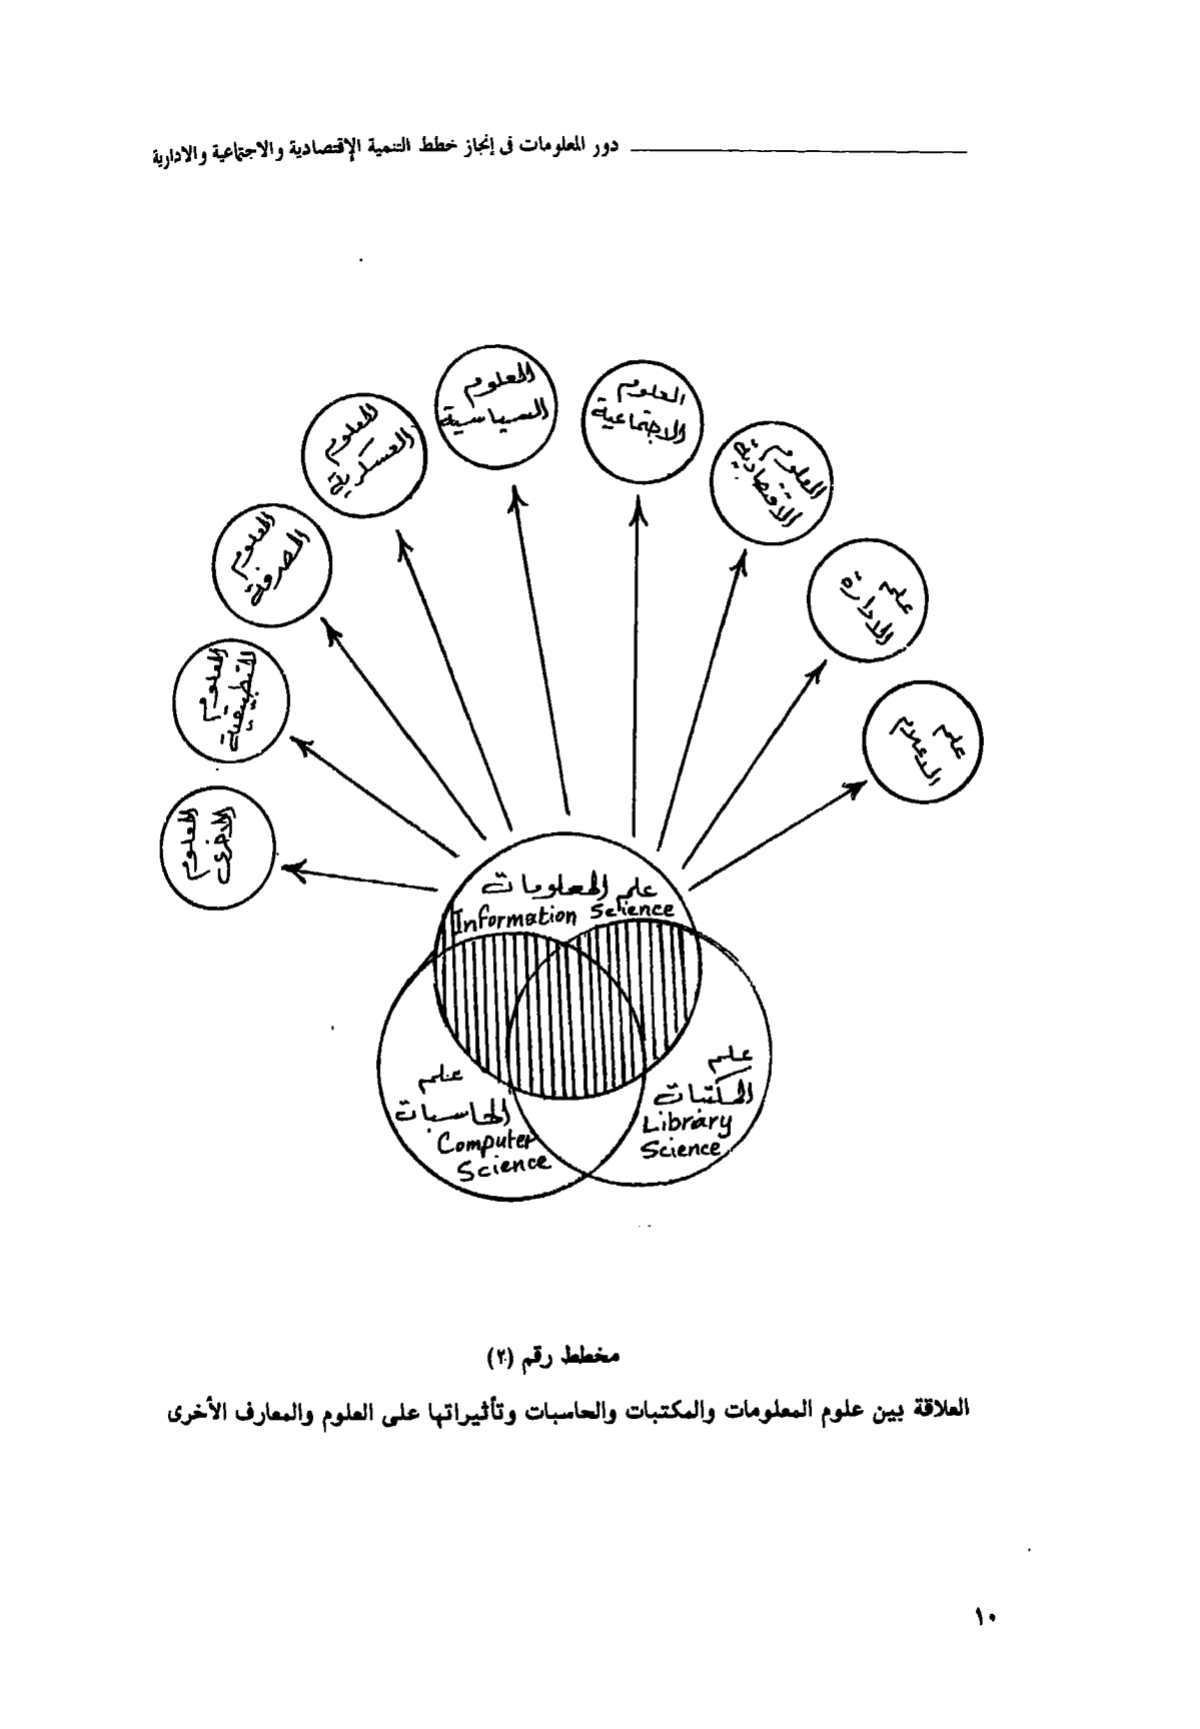 دور المعلومات فى إنجاز خطط التنمية الإقتصادية والاجتماعية والادارية
العلوم
السياسية
العلوم
الاجتماعية
العلوم
العسكرية
العلوم
الاقتصادية
العلوم
المصرفية
علم
الادارة
العلوم
التطبيقية
علم
الاعلام
العلوم
الاخرى
علم المعلومات
Information Science
علم
المكتبات
Library
Science
علم
الحاسبات
Computer
Science
مخطط رقم (٢)
العلاقة بين علوم المعلومات والمكتبات والحاسبات وتأثيراتها على العلوم والمعارف الأخرى
١٠